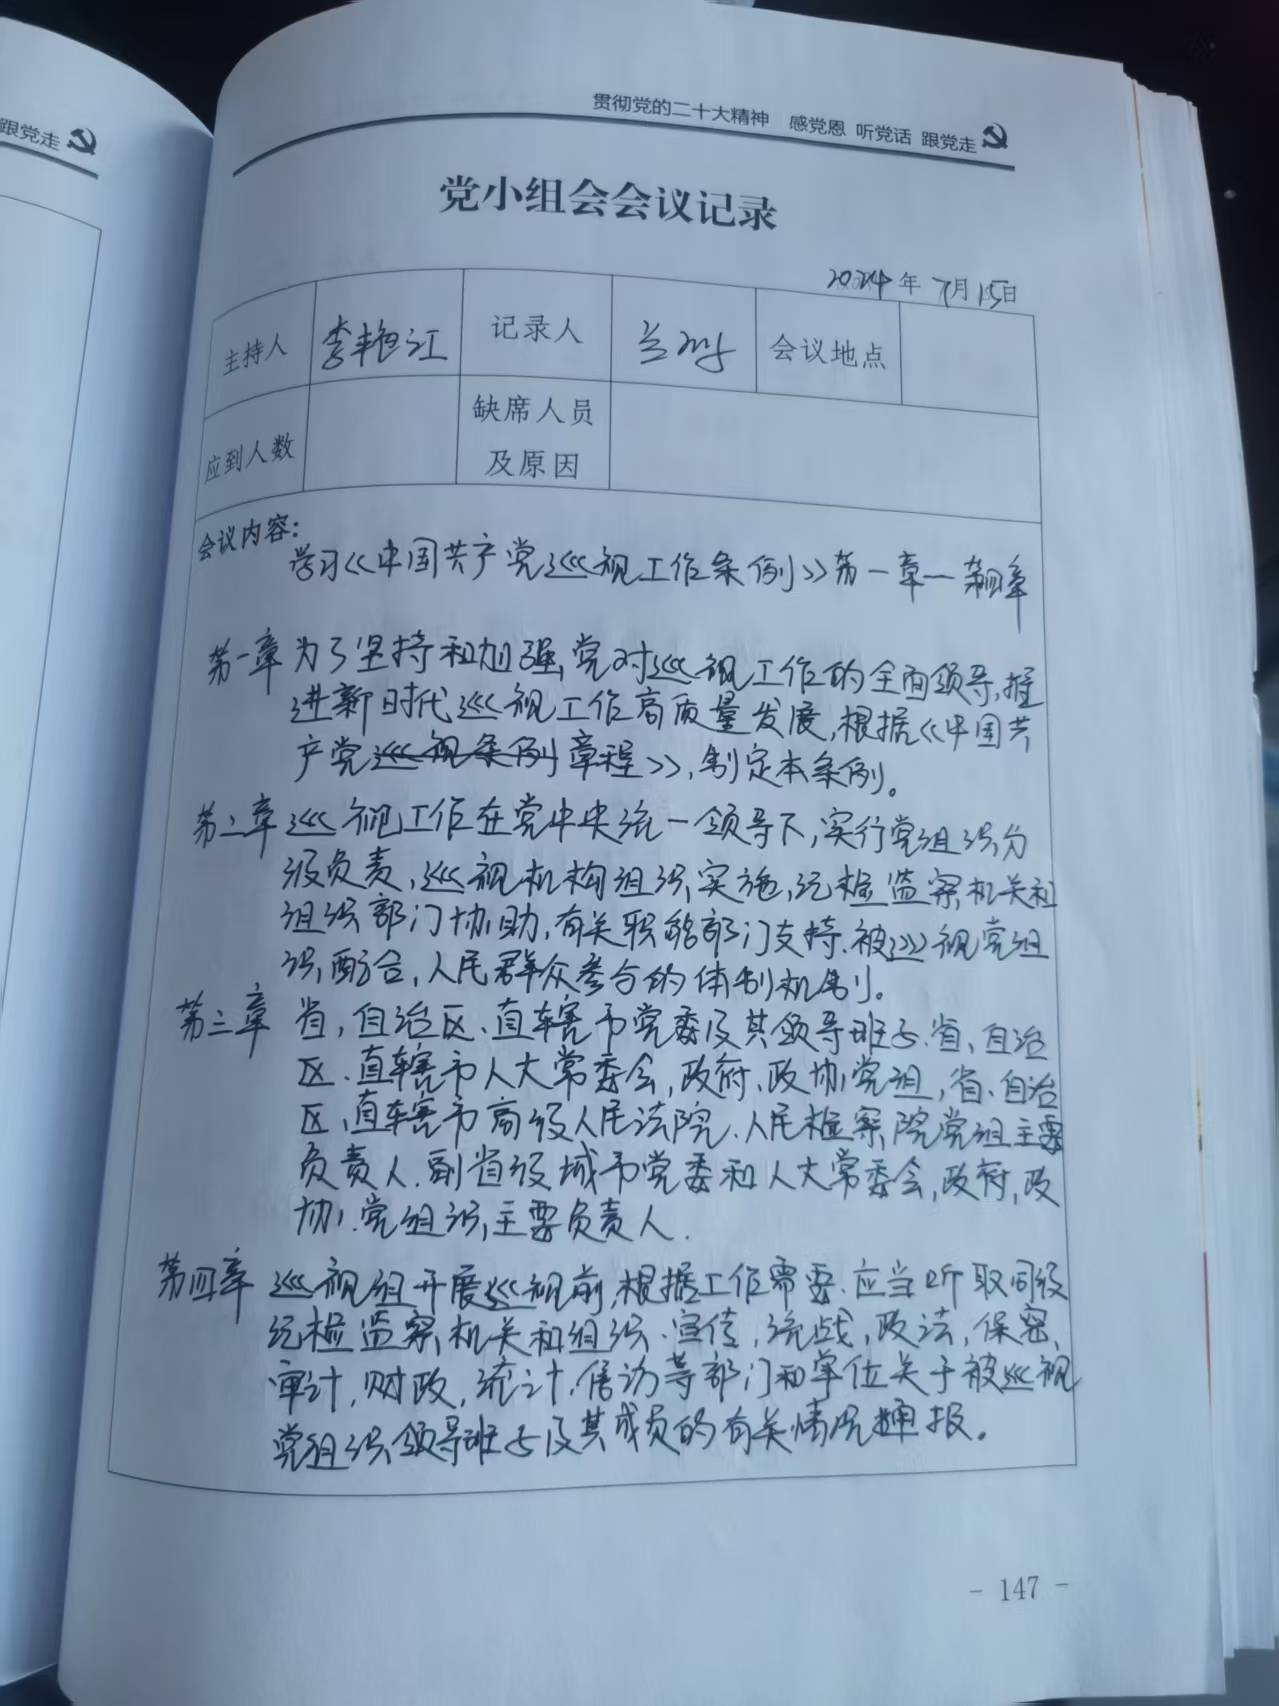 跟党走
贯彻党的二十大精神 感党恩 听党话 跟党走
党小组会会议记录
2024年7月15日
主持人 李艳江 记录人 会议地点
应到人数 缺席人员及原因
会议内容：
学习《中国共产党巡视工作条例》第一章一第四章
第一章 为了坚持和加强党对巡视工作的全面领导,推
进新时代巡视工作高质量发展,根据《中国共
产党巡视条例章程》,制定本条例。
第二章 巡视工作在党中央统一领导下,实行党组织分
级负责,巡视机构组织实施,纪检监察机关和
组织部门协助,有关职能部门支持、被巡视党组
织配合,人民群众参与的体制机制。
第三章 省,自治区、直辖市党委及其领导班子、省、自治
区、直辖市人大常委会,政府、政协党组,省、自治
区、直辖市高级人民法院、人民检察院党组主要
负责人、副省级城市党委和人大常委会,政府,政
协、党组织主要负责人.
第四章 巡视组开展巡视前,根据工作需要、应当听取同级
纪检监察机关和组织、宣传,统战,政法,保密、
审计,财政,统计、信访等部门和单位关于被巡视
党组织领导班子及其成员的有关情况通报。
- 147 -